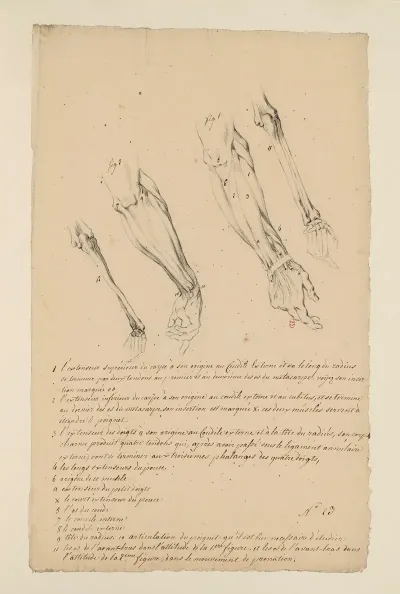 fig 2
fig 1
1 l'extenseur supérieur du carpe a son origine au condile externe et va le long du radius
se termine par deux tendons au premier et au deuxieme des os du metacarpe voyez son inser
tion marquée
2 l'extenseur inferieur du carpe a son origine au condile externe et au cubitus, et se termine
au dernier des os du metacarpe son insertion est marquée x ces deux muscles servent à
étendre le poignet.
3 l'extenseur des doigts a son origine au condile externe et à la tête du radius, son corps
charnu produit quatre tendons qui, après avoir passé sous le ligament annulaire
externe vont se terminer aux troisièmes phalanges des quatre doigts,
4 les longs extenseurs du pouce
6 origine de ce muscle
a extenseur du petit doigt
x le court extenseur du pouce
5 l'os du coude
7 le condile interne
8 le condile externe
9 tête du radius articulation du poignet qu'il est très necessaire d'étudier
11 les os de l'avant-bras dans l'attitude de la 1ere figure, et les os de l'avant-bras dans
l'attitude de la 2eme figure, dans le mouvement de pronation.
N° 23